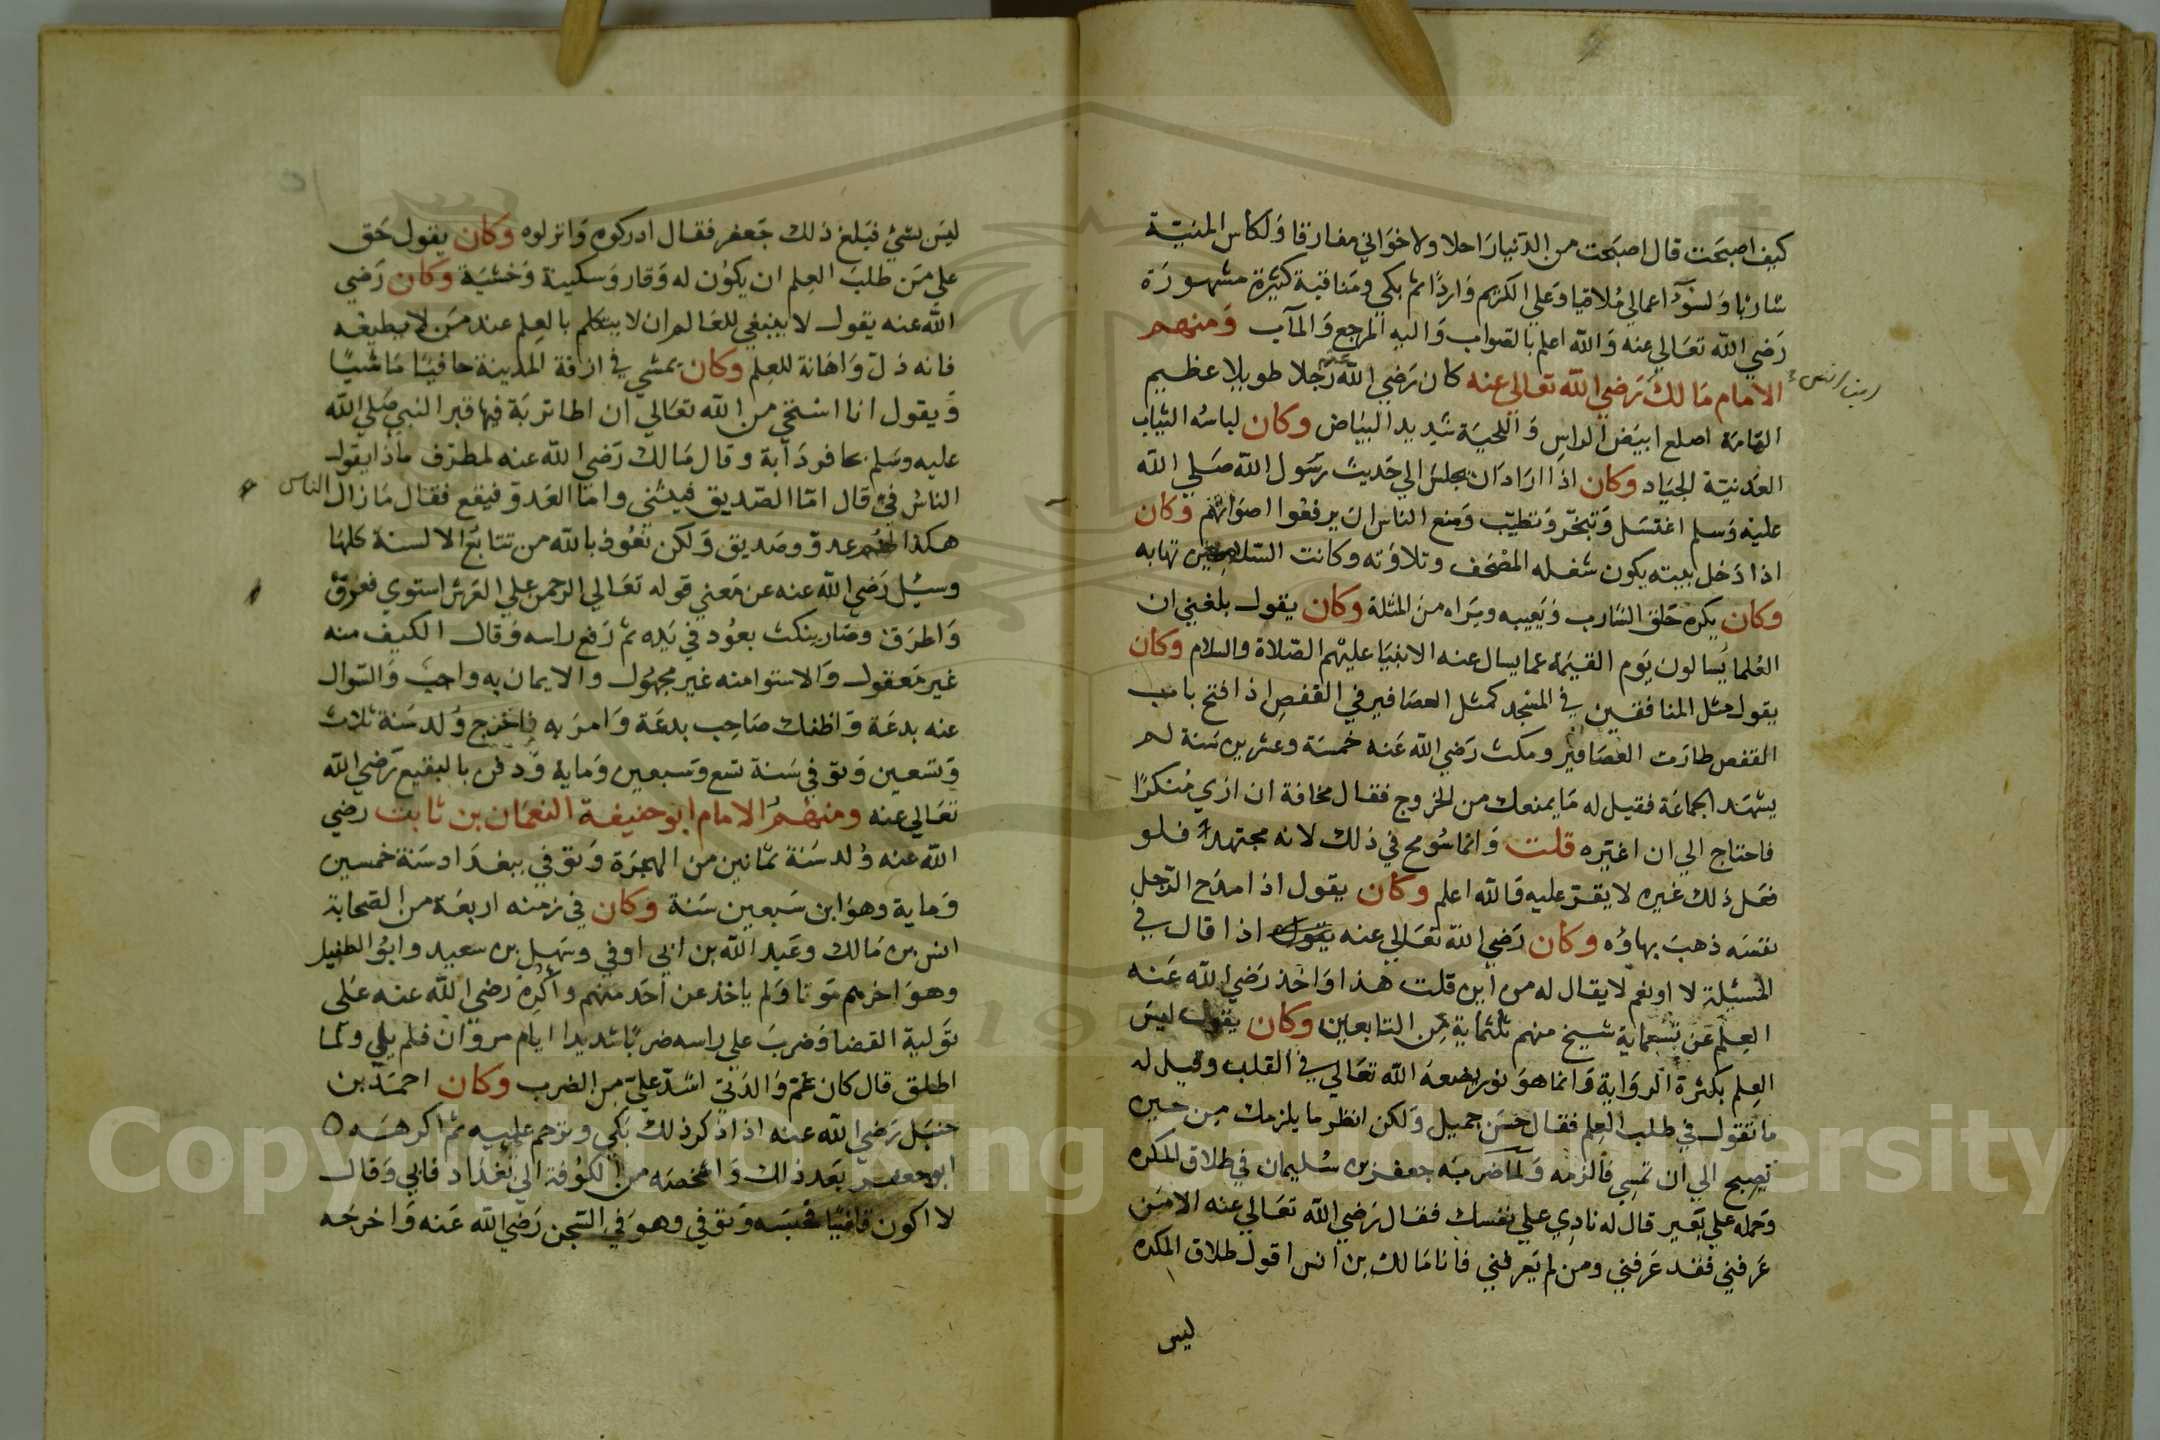 كيف اصبحت قال اصبحت من الدنيا راحلا ولاخواني مفارقا ولكاس المنية
شاربا ولسوء اعمالي ملاقيا وعلي الكريم واردا ثم بكي ومناقبه كثيرة مشهورة
رضي الله تعالي عنه والله اعلم بالصواب واليه المرجع والمآب ومنهم
الامام مالك رضي الله تعالى عنه كان رضي الله عنه رجلا طويلا عظيم
ابن انس
الهامة اصلع ابيض الراس واللحية شديد البياض وكان لباسه الثياب
العدنية الجياد وكان اذا اراد ان يجلس الي حديث رسول الله صلي الله
عليه وسلم اغتسل وتبخر وتطيب ومنع الناس ان يرفعوا اصواتهم وكان
اذا دخل بيته يكون شغله المصحف وتلاوته وكانت السلاطين تهابه
وكان يكره حلق الشارب ويعيبه ويراه من المثلة وكان يقول بلغني ان
العلما يسالون يوم القيمة عما يسال عنه الانبيا عليهم الصلاة والسلام وكان
يقول مثل المنافقين في المسجد كمثل العصافير في القفص اذا فتح باب
القفص طارت العصافير ومكث رضي الله عنه خمسة وعشرين سنة لم
يشهد الجماعة فقيل له ما يمنعك من الخروج فقال مخافة ان اري منكرا
فاحتاج الي ان اغيره قلت وانما سومح في ذلك لانه مجتهد فلو
فعل ذلك غيره لا يقر عليه فالله اعلم وكان يقول اذا مدح الرجل
نفسه ذهب بهاؤه وكان رضي الله تعالي عنه يقول اذا قال في
المسيلة لا او نعم لا يقال له من اين قلت هذا واخذ رضي الله عنه
العلم عن تسعماية شيخ منهم ثلثماية من التابعين وكان يقول ليس
العلم بكثرة الرواية وانما هو نور يضعه الله تعالي في القلب وقيل له
ما تقول في طلب العلم فقال حسن جميل ولكن انظر ما يلزمك من حين
تصبح الي ان تمسي فالزمه ولما ضربه جعفر بن سليمان في طلاق المكره
وحمله علي بعير قال له نادي علي نفسك فقال رضي الله تعالي عنه الا من
عرفني فقد عرفني ومن لم يعرفني فانا مالك بن انس اقول طلاق المكره
ليس
ليس بشيء فبلغ ذلك جعفر فقال ادركوه وانزلوه وكان يقول حق
علي من طلب العلم ان يكون له وقار وسكينة وخشية وكان رضي
الله عنه يقول لا ينبغي للعالم ان لا يتكلم بالعلم عند من لا يطيقه
فانه ذل واهانة للعلم وكان يمشي في ازقة المدينة حافيا ماشيا
ويقول انا استحي من الله تعالي ان اطا تربة فيها قبر النبي صلي الله
عليه وسلم بحافر دابة وقال مالك رضي الله عنه لمطرف ماذا يقول
الناس في قال اما الصديق فيثني واما العدو فيقع فقال ما زال الناس
هكذا لهم عدو وصديق ولكن نعوذ بالله من تتابع الالسنة كلها
وسيل رضي الله عنه عن معني قوله تعالي الرحمن علي العرش استوي فعرق
واطرق وصار ينكث بعود في يده ثم رفع راسه وقال الكيف منه
غير معقول والاستوا منه غير مجهول والايمان به واجب والسوال
عنه بدعة واظنك صاحب بدعة وامر به فاخرج ولد سنة ثلاث
وتسعين وتوفي سنة تسع وسبعين وماية ودفن بالبقيع رضي الله
تعالي عنه ومنهم الامام ابو حنيفة النعمان بن ثابت رضي
الله عنه ولد سنة ثمانين من الهجرة وتوفي ببغداد سنة خمسين
وماية وهو ابن سبعين سنة وكان في زمنه اربعة من الصحابة
انس بن مالك وعبد الله بن ابي اوفي وسهل بن سعيد وابو الطفيل
وهو اخرهم موتا ولم ياخذ عن احد منهم واكره رضي الله عنه علي
تولية القضا وضرب علي راسه ضربا شديدا ايام مروان فلم يلي ولما
اطلق قال كان غم والدتي اشد علي من الضرب وكان احمد بن
حنبل رضي الله عنه اذا ذكر ذلك بكي وترحم عليه ثم اكرهه
ابو جعفر بعد ذلك واشخصه من الكوفة الي بغداد فابي وقال
لا اكون قاضيا فحبسه وتوفي وهو في السجن رضي الله عنه واخرجه
Copyright © King Saud University